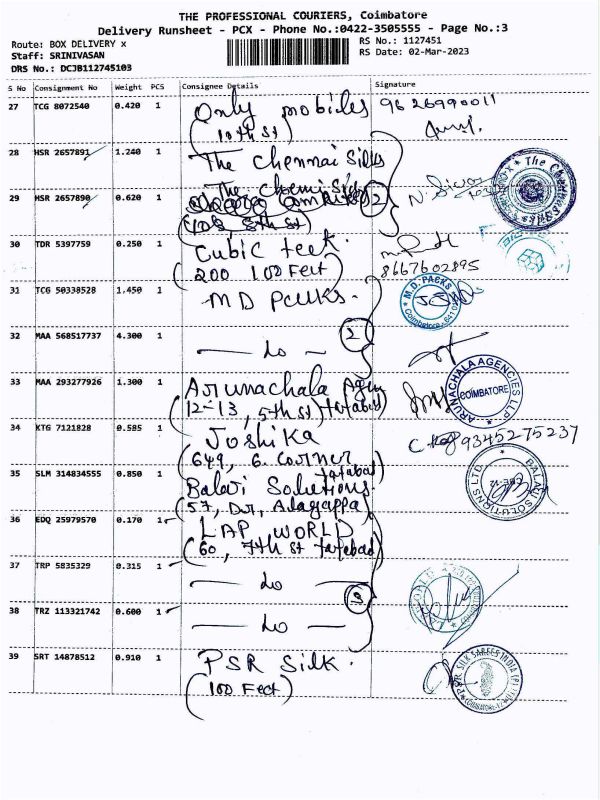 THE PROFESSIONAL COURIERS, Coimbatore
Delivery Runsheet - PCX - Phone No.:0422-3505555 - Page No.:3
Route: BOX DELIVERY x
RS No.: 1127451
Staff: SRINIVASAN
RS Date: 02-Mar-2023
DRS No.: DCJB112745103
S No Consignment No Weight PCS Consignee Details Signature
27 TCG 8072540 0.420 1 Only mobiles 9626990011
(10th St)
28 HSR 2657891 1.240 1 The Chennai Silks
29 HSR 2657890 0.620 1 The Chennai Silks 2
8th St)
30 TDR 5397759 0.250 1 Cubic teck.
(200 100 Feet) 8667602895
31 TCG 50338528 1.450 1 MD Packs.
M.D. PACKS
Coimbatore
32 MAA 568517737 4.300 1 — do — 2
33 MAA 293277926 1.300 1 Arunachala Agen
(12-13, 5th St) tatabad
ARUNACHALA AGENCIES LLP
COIMBATORE
34 KTG 7121828 0.585 1 Joshika 9345275237
(649, 6. Corner
tatabad)
35 SLM 314834555 0.850 1 Balaji Solutions.
(57, Alagappa)
BALAJI SOLUTIONS LTD.
36 EDQ 25979570 0.170 1 LAP WORLD
(60, 7th St tatabad)
37 TRP 5835329 0.315 1 — do —
3
38 TRZ 113321742 0.600 1 — do —
39 SRT 14878512 0.910 1 PSR Silk.
(100 Feet)
PSR SILK SAREES INDIA (P) LTD